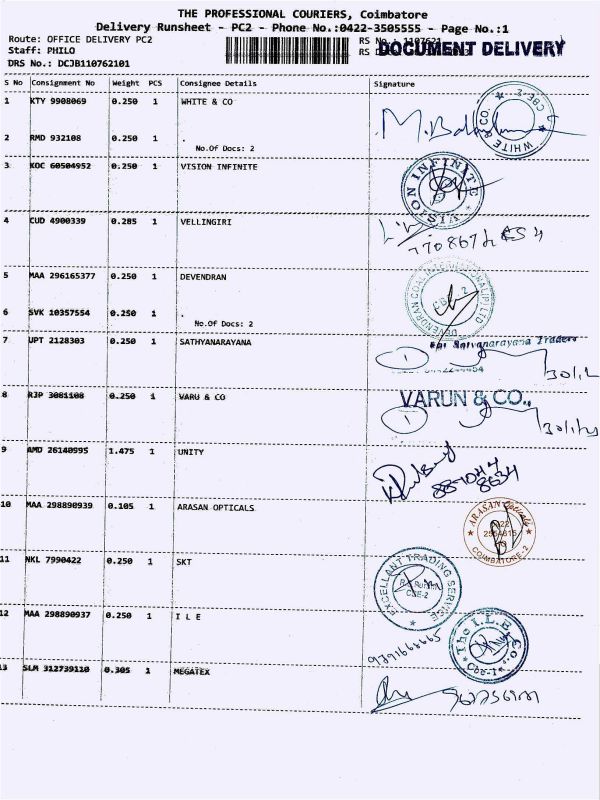 THE PROFESSIONAL COURIERS, Coimbatore
Delivery Runsheet - PC2 - Phone No.:0422-3505555 - Page No.:1
Route: OFFICE DELIVERY PC2
RS No.: 1107621
Staff: PHILO
DOCUMENT DELIVERY
DRS No.: DCJB110762101
S No Consignment No Weight PCS Consignee Details Signature
1 KTY 9908069 0.250 1 WHITE & CO
WHITE & CO. CBE-2
2 RMD 932108 0.250 1 .
No.Of Docs: 2
3 KOC 60504952 0.250 1 VISION INFINITE
4 CUD 4900339 0.285 1 VELLINGIRI
5 MAA 296165377 0.250 1 DEVENDRAN
6 SVK 10357554 0.250 1 .
No.Of Docs: 2
7 UPT 2128303 0.250 1 SATHYANARAYANA
8 RJP 3081108 0.250 1 VARU & CO
VARUN & CO.,
9 AMD 26140995 1.475 1 UNITY
10 MAA 298890939 0.105 1 ARASAN OPTICALS
ARASAN Opticals
COIMBATORE-2
11 NKL 7990422 0.250 1 SKT
EXCELLANT TRADING SERVICE
CBE-2
12 MAA 298890937 0.250 1 I L E
The I.L.E
13 SLM 312739110 0.305 1 MEGATEX